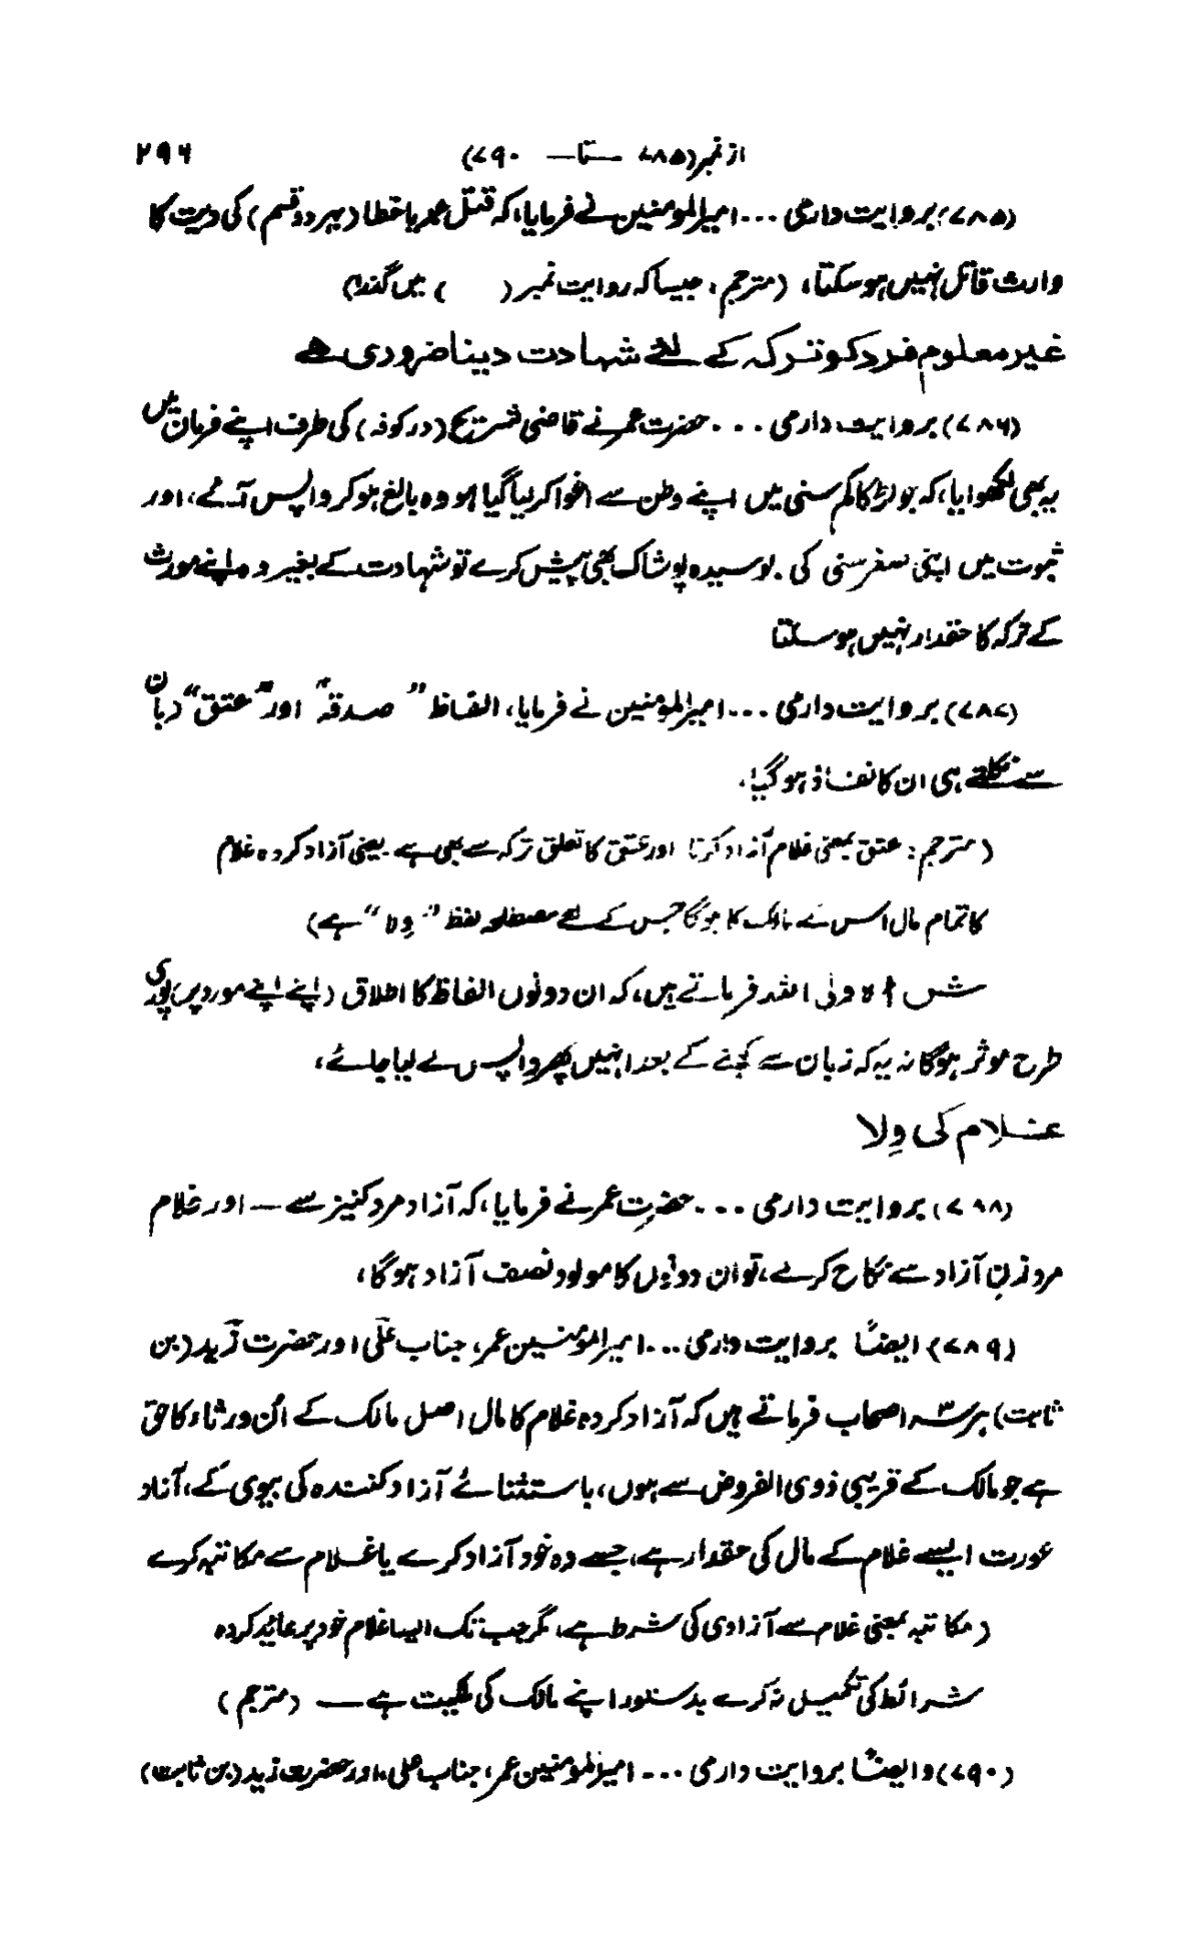 از نمبر (۷۸۵ — تا — ۷۹۰) ۲۹۶
(۷۸۵) بروایت دارمی ... امیرالمومنین نے فرمایا، کہ قتل عمد یا خطا (بہر دو قسم) کی دیت کا
وارث قاتل نہیں ہو سکتا، (مترجم: جیسا کہ روایت نمبر ( ) میں گذرا)
غیر معلوم فرد کو ترکہ کے لئے شہادت دینا ضروری ہے
(۷۸۶) بروایت دارمی ... حضرت عمر نے قاضی شریح (در کوفہ) کی طرف اپنے فرمان میں
یہ بھی لکھوایا، کہ جو لڑکا کم سنی میں اپنے وطن سے اغوا کر لیا گیا ہو وہ بالغ ہو کر واپس آئے، اور
ثبوت میں اپنی صغر سنی کی بوسیدہ پوشاک بھی پیش کرے تو شہادت کے بغیر وہ اپنے مورث
کے ترکہ کا حقدار نہیں ہو سکتا
(۷۸۷) بروایت دارمی ... امیرالمومنین نے فرمایا، الفاظ "صدقہ" اور "عتق" زبان
سے نکلتے ہی ان کا نفاذ ہو گیا،
(مترجم: عتق بمعنی غلام آزاد کرنا اور عتق کا تعلق ترکہ سے بھی ہے۔ یعنی آزاد کردہ غلام
کا تمام مال اس کے مالک کا ہوگا جس کے لئے مصطلحہ لفظ "وِلا" ہے)
شاہ ولی اللہ فرماتے ہیں، کہ ان دونوں الفاظ کا اطلاق (اپنے اپنے مورد پر) پوری
طرح موثر ہوگا نہ یہ کہ زبان سے کہنے کے بعد انہیں پھر واپس لے لیا جائے،
غلام کی وِلا
(۷۸۸) بروایت دارمی ... حضرت عمر نے فرمایا، کہ آزاد مرد کنیز سے — اور غلام
مرد زنِ آزاد سے نکاح کرے، تو ان دونوں کا مولود نصف آزاد ہوگا،
(۷۸۹) ایضاً بروایت دارمی ... امیرالمومنین عمر، جناب علی اور حضرت زید (بن
ثابت) ہر سہ اصحاب فرماتے ہیں کہ آزاد کردہ غلام کا مال اصل مالک کے اُن ورثاء کا حق
ہے جو مالک کے قریبی ذوی الفروض سے ہوں، باستثنائے آزاد کنندہ کی بیوی کے، آزاد
عورت ایسے غلام کے مال کی حقدار ہے، جسے وہ خود آزاد کرے یا غلام سے مکاتبہ کرے
(مکاتبہ بمعنی غلام سے آزادی کی شرط ہے، مگر جب تک ایسا غلام خود پر عائد کردہ
شرائط کی تکمیل نہ کرے بدستور اپنے مالک کی ملکیت ہے — (مترجم)
(۷۹۰) و ایضاً بروایت دارمی ... امیرالمومنین عمر، جناب علی، اور حضرت زید (بن ثابت)